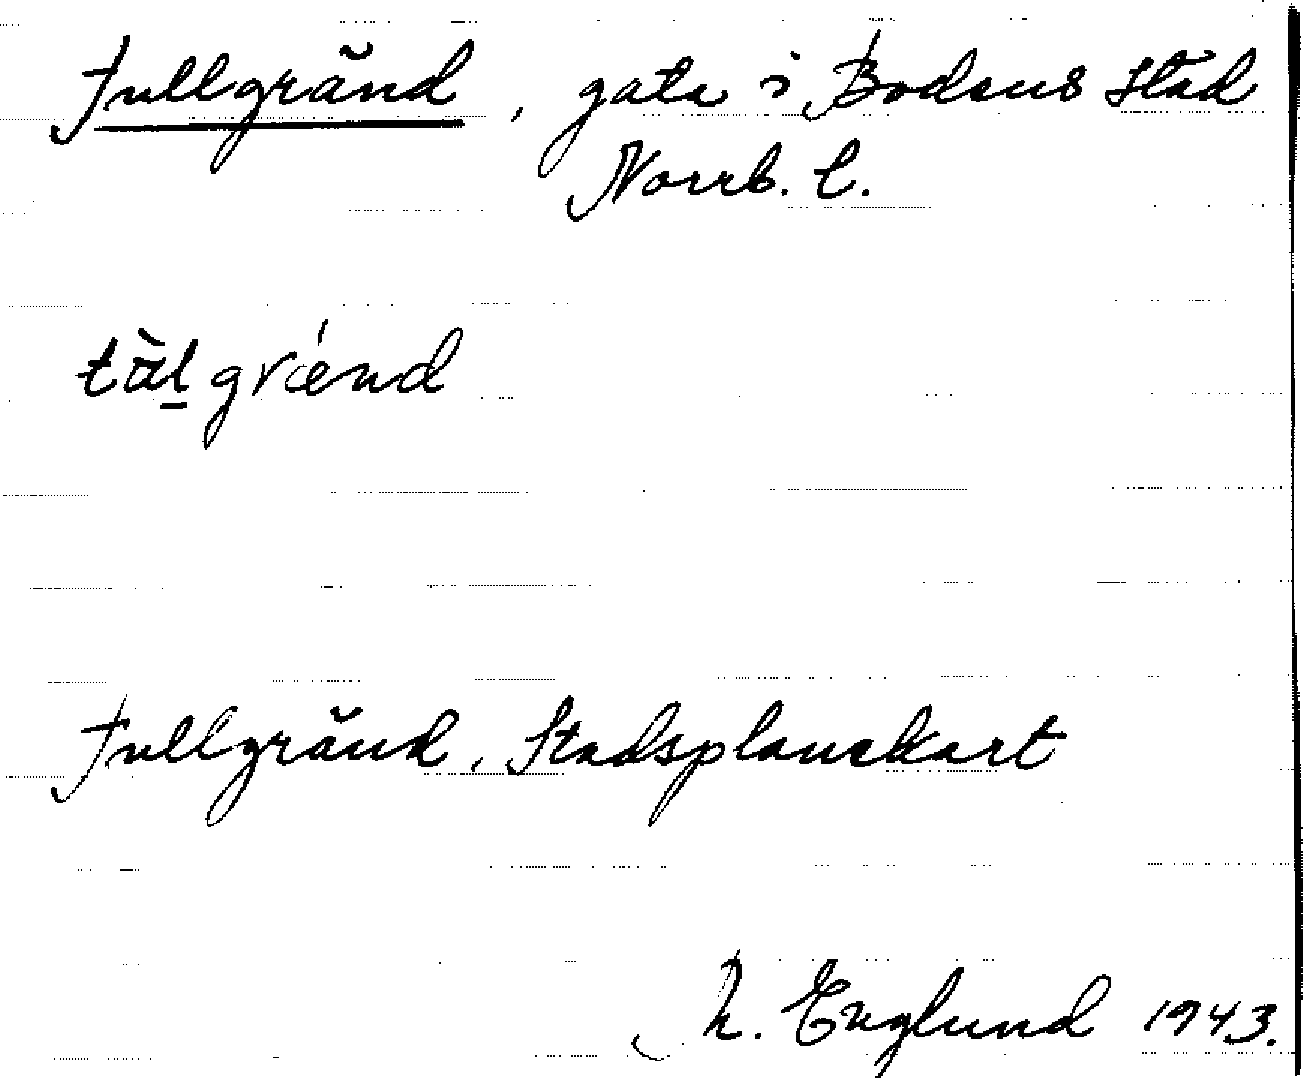 Tullgränd, gata i Bodens stad
Norrb. l.
grænd
Tullgränd, Stadsplanekart
N. Englund 1943.